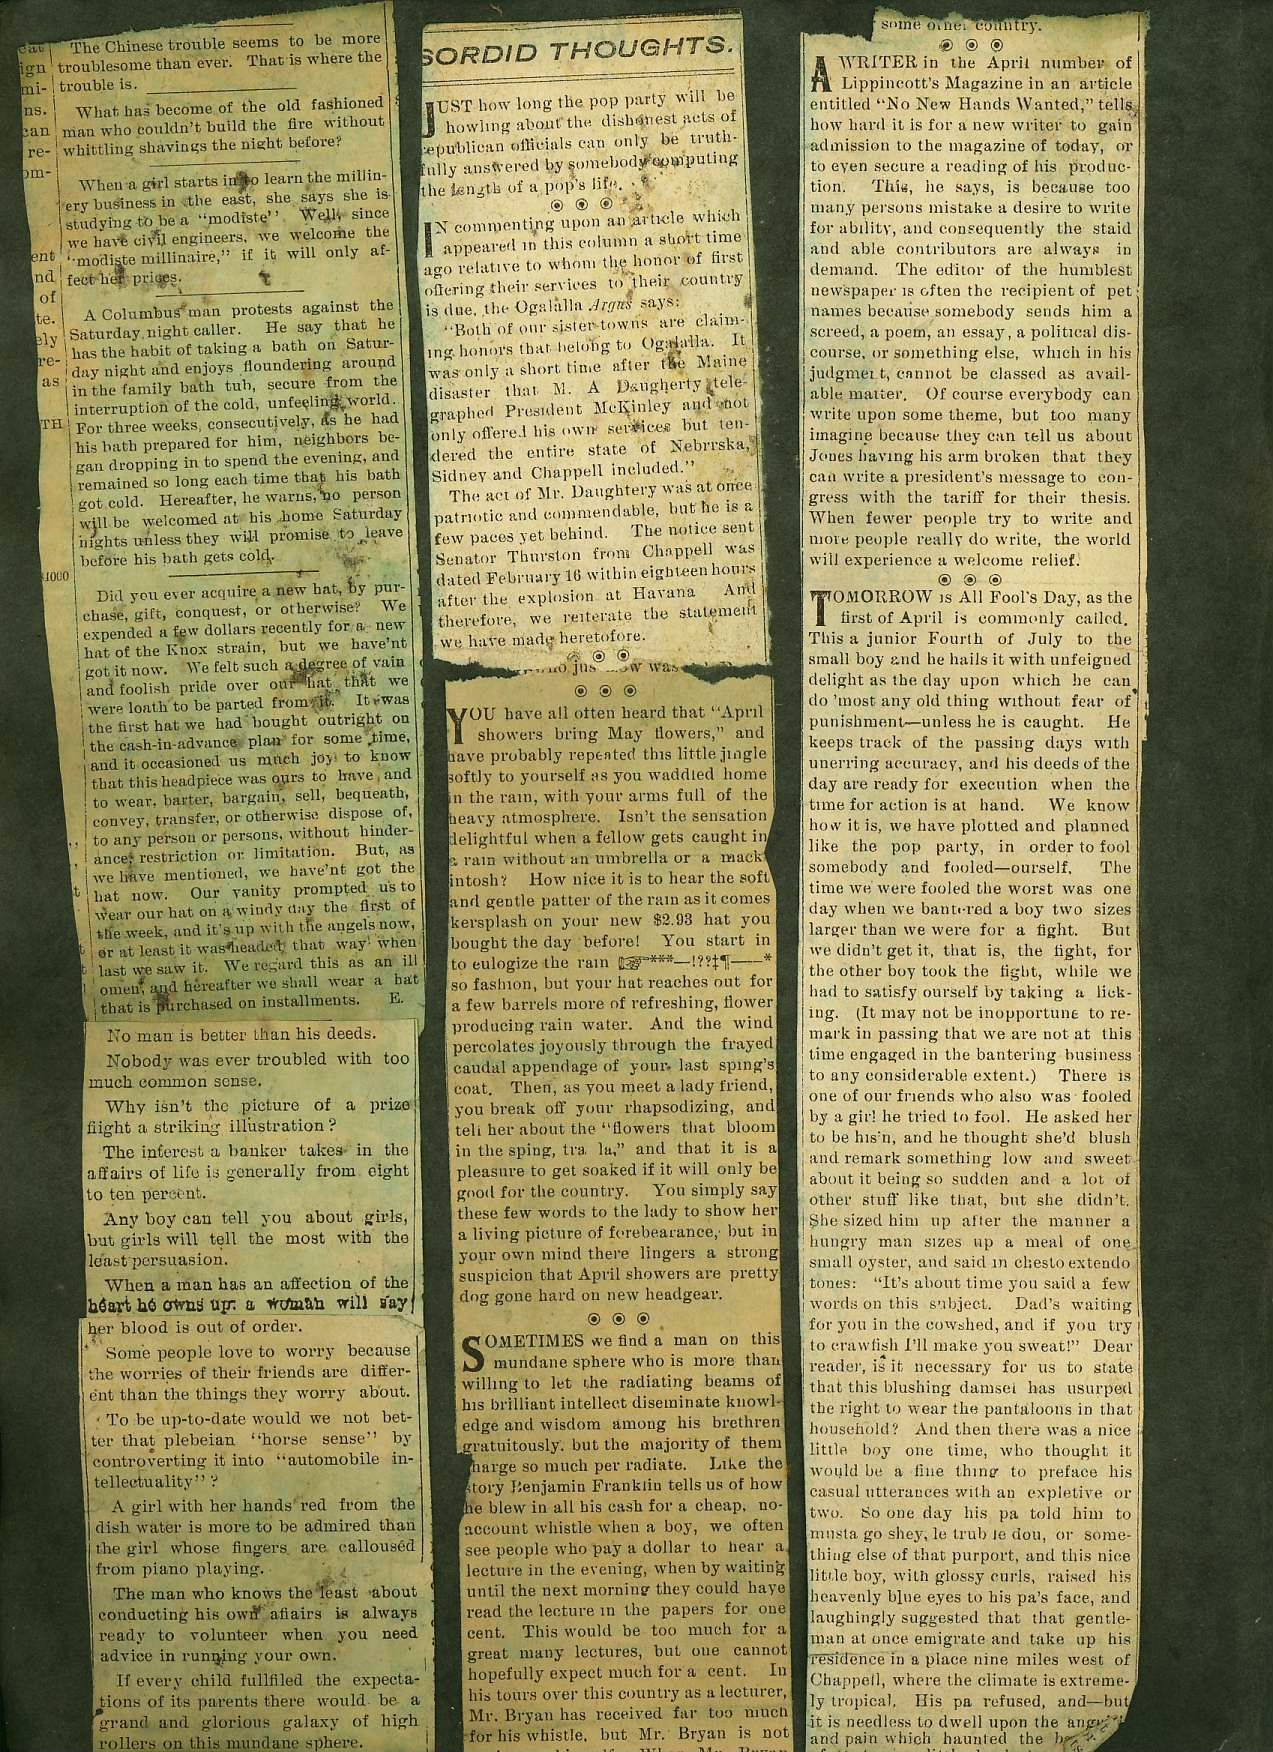 The Chinese trouble seems to be more
troublesome than ever. That is where the
trouble is.
What has become of the old fashioned
man who couldn't build the fire without
whittling shavings the night before?
When a girl starts in to learn the millin-
ery business in the east, she says she is
studying to be a "modiste" Well, since
we have civil engineers, we welcome the
"modiste millinaire," if it will only af-
fect her prices.
A Columbus man protests against the
Saturday night caller. He say that he
has the habit of taking a bath on Satur-
day night and enjoys floundering around
in the family bath tub, secure from the
interruption of the cold, unfeeling world.
For three weeks, consecutively, as he had
his bath prepared for him, neighbors be-
gan dropping in to spend the evening, and
remained so long each time that his bath
got cold. Hereafter, he warns, no person
will be welcomed at his home Saturday
nights unless they will promise to leave
before his bath gets cold.
Did you ever acquire a new hat, by pur-
chase, gift, conquest, or otherwise? We
expended a few dollars recently for a new
hat of the Knox strain, but we have'nt
got it now. We felt such a degree of vain
and foolish pride over our hat that we
were loath to be parted from it. It was
the first hat we had bought outright on
the cash-in-advance plan for some time,
and it occasioned us much joy to know
that this headpiece was ours to have and
to wear, barter, bargain, sell, bequeath,
convey, transfer, or otherwise dispose of,
to any person or persons, without hinder-
ance, restriction or limitation. But, as
we have mentioned, we have'nt got the
hat now. Our vanity prompted us to
wear our hat on a windy day the first of
the week, and it's up with the angels now,
or at least it was headed that way when
last we saw it. We regard this as an ill
omen, and hereafter we shall wear a hat
that is purchased on installments. E.
No man is better than his deeds.
Nobody was ever troubled with too
much common sense.
Why isn't the picture of a prize
fiight a striking illustration?
The interest a banker takes in the
affairs of life is generally from eight
to ten percent.
Any boy can tell you about girls,
but girls will tell the most with the
least persuasion.
When a man has an affection of the
heart he owns up: a woman will say
her blood is out of order.
Some people love to worry because
the worries of their friends are differ-
ent than the things they worry about.
To be up-to-date would we not bet-
ter that plebeian "horse sense" by
controverting it into "automobile in-
tellectuality"?
A girl with her hands red from the
dish water is more to be admired than
the girl whose fingers are calloused
from piano playing.
The man who knows the least about
conducting his own affairs is always
ready to volunteer when you need
advice in running your own.
If every child fullfiled the expecta-
tions of its parents there would be a
grand and glorious galaxy of high
rollers on this mundane sphere.
SORDID THOUGHTS.
JUST how long the pop party will be
howling about the dishonest acts of
republican officials can only be truth-
fully answered by somebody computing
the length of a pop's life.
IN commenting upon an article which
appeared in this column a short time
ago relative to whom the honor of first
offering their services to their country
is due, the Ogalalla Argus says:
"Both of our sister towns are claim-
ing honors that belong to Ogalalla. It
was only a short time after the Maine
disaster that M. A Daugherty tele-
graphed President McKinley and not
only offered his own services but ten-
dered the entire state of Nebrrska,
Sidney and Chappell included."
The act of Mr. Daughtery was at once
patriotic and commendable, but he is a
few paces yet behind. The notice sent
Senator Thurston from Chappell was
dated February 16 within eighteen hours
after the explosion at Havana And
therefore, we reiterate the statement
we have made heretofore.
YOU have all often heard that "April
showers bring May flowers," and
have probably repeated this little jingle
softly to yourself as you waddled home
in the rain, with your arms full of the
heavy atmosphere. Isn't the sensation
delightful when a fellow gets caught in
a rain without an umbrella or a mack
intosh? How nice it is to hear the soft
and gentle patter of the rain as it comes
kersplash on your new $2.93 hat you
bought the day before! You start in
to eulogize the rain ☞***—!??‡¶——*
so fashion, but your hat reaches out for
a few barrels more of refreshing, flower
producing rain water. And the wind
percolates joyously through the frayed
caudal appendage of your last sping's
coat. Then, as you meet a lady friend,
you break off your rhapsodizing, and
tell her about the "flowers that bloom
in the sping, tra la," and that it is a
pleasure to get soaked if it will only be
good for the country. You simply say
these few words to the lady to show her
a living picture of forebearance, but in
your own mind there lingers a strong
suspicion that April showers are pretty
dog gone hard on new headgear.
SOMETIMES we find a man on this
mundane sphere who is more than
willing to let the radiating beams of
his brilliant intellect diseminate knowl-
edge and wisdom among his brethren
gratuitously, but the majority of them
harge so much per radiate. Like the
story Benjamin Franklin tells us of how
he blew in all his cash for a cheap, no-
account whistle when a boy, we often
see people who pay a dollar to hear a
lecture in the evening, when by waiting
until the next morning they could have
read the lecture in the papers for one
cent. This would be too much for a
great many lectures, but one cannot
hopefully expect much for a cent. In
his tours over this country as a lecturer,
Mr. Bryan has received far too much
for his whistle, but Mr. Bryan is not
some other country.
A WRITER in the April number of
Lippincott's Magazine in an article
entitled "No New Hands Wanted," tells
how hard it is for a new writer to gain
admission to the magazine of today, or
to even secure a reading of his produc-
tion. This, he says, is because too
many persons mistake a desire to write
for ability, and consequently the staid
and able contributors are always in
demand. The editor of the humblest
newspaper is often the recipient of pet
names because somebody sends him a
screed, a poem, an essay, a political dis-
course, or something else, which in his
judgment, cannot be classed as avail-
able matter. Of course everybody can
write upon some theme, but too many
imagine because they can tell us about
Jones having his arm broken that they
can write a president's message to con-
gress with the tariff for their thesis.
When fewer people try to write and
more people really do write, the world
will experience a welcome relief.
TOMORROW is All Fool's Day, as the
first of April is commonly called.
This a junior Fourth of July to the
small boy and he hails it with unfeigned
delight as the day upon which he can
do 'most any old thing without fear of
punishment—unless he is caught. He
keeps track of the passing days with
unerring accuracy, and his deeds of the
day are ready for execution when the
time for action is at hand. We know
how it is, we have plotted and planned
like the pop party, in order to fool
somebody and fooled—ourself. The
time we were fooled the worst was one
day when we bantered a boy two sizes
larger than we were for a fight. But
we didn't get it, that is, the fight, for
the other boy took the fight, while we
had to satisfy ourself by taking a lick-
ing. (It may not be inopportune to re-
mark in passing that we are not at this
time engaged in the bantering business
to any considerable extent.) There is
one of our friends who also was fooled
by a girl he tried to fool. He asked her
to be his'n, and he thought she'd blush
and remark something low and sweet
about it being so sudden and a lot of
other stuff like that, but she didn't.
She sized him up after the manner a
hungry man sizes up a meal of one
small oyster, and said in chesto extendo
tones: "It's about time you said a few
words on this subject. Dad's waiting
for you in the cowshed, and if you try
to crawfish I'll make you sweat!" Dear
reader, is it necessary for us to state
that this blushing damsel has usurped
the right to wear the pantaloons in that
household? And then there was a nice
little boy one time, who thought it
would be a fine thing to preface his
casual utterances with an expletive or
two. So one day his pa told him to
musta go shey, le trub le dou, or some-
thing else of that purport, and this nice
little boy, with glossy curls, raised his
heavenly blue eyes to his pa's face, and
laughingly suggested that that gentle-
man at once emigrate and take up his
residence in a place nine miles west of
Chappell, where the climate is extreme-
ly tropical. His pa refused, and—but
it is needless to dwell upon the
and pain which haunted the